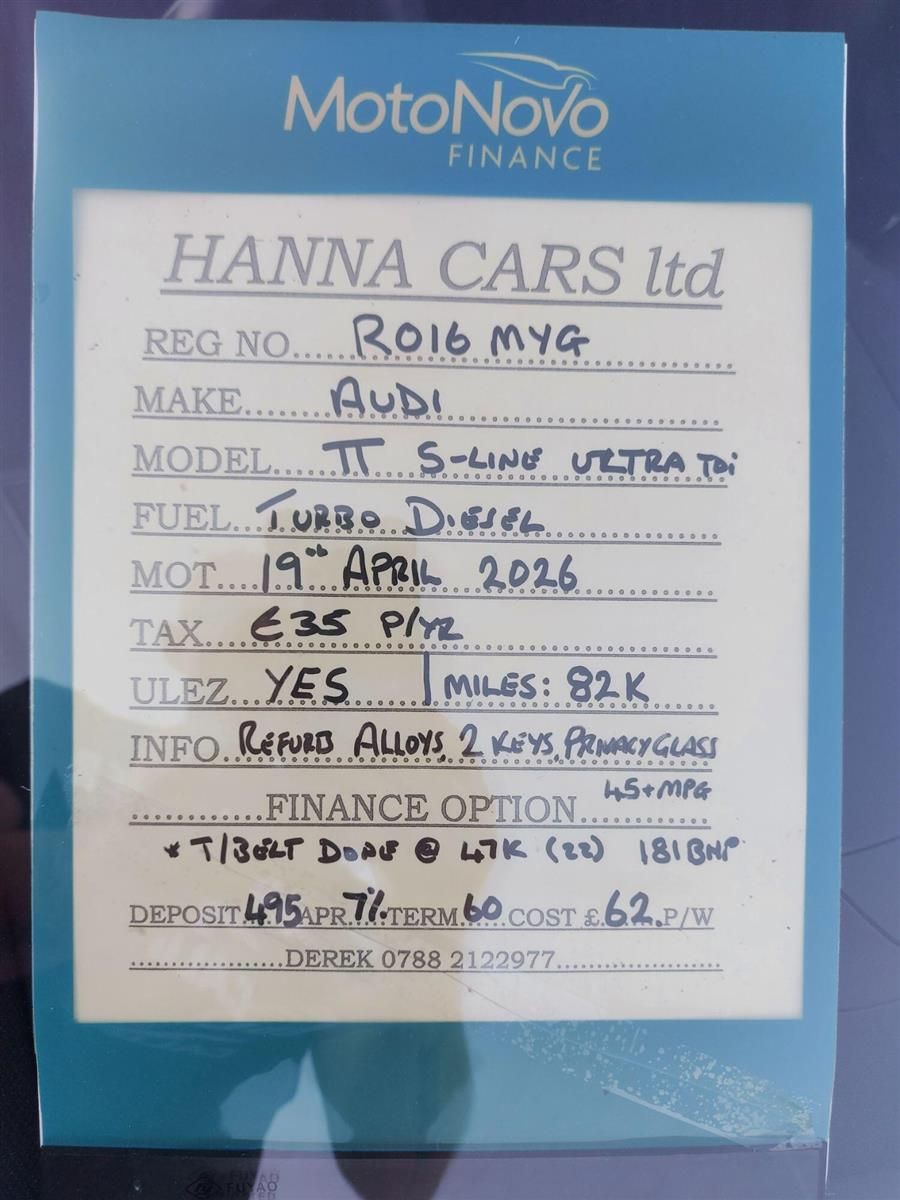 MotoNovo
FINANCE
HANNA CARS ltd
REG NO.....RO16 MYG
MAKE.....AUDI
MODEL.....TT S-LINE ULTRA TDi
FUEL...TURBO DIESEL
MOT....19th APRIL 2026
TAX...£35 P/YR
ULEZ...YES | MILES: 82K
INFO..REFURB ALLOYS, 2 KEYS, PRIVACY GLASS
45+MPG
............FINANCE OPTION............
* T/BELT DONE @ 47K (22) 181BHP
DEPOSIT.495.APR.7%.TERM.60...COST £.62.P/W
..................DEREK 0788 2122977...................
FUYAO